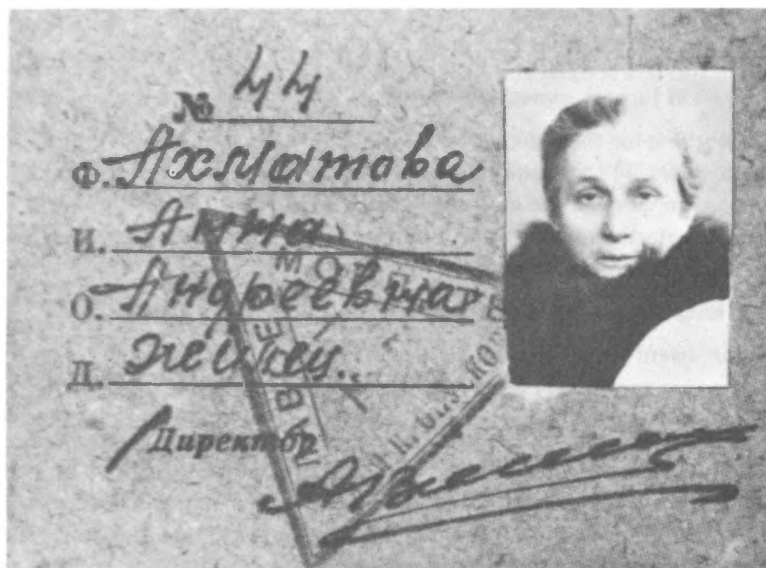 № 44
Ф. Ахматова
И. Анна
О. Андреевна
Д. жилец.
Директор